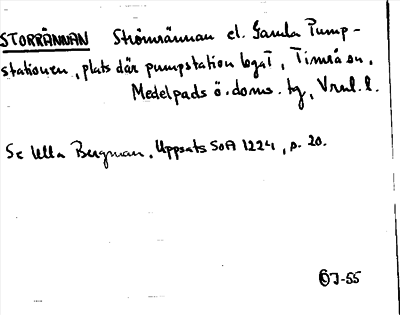 STORRÄNNAN Strömrännan el. Gamla Pump-
stationen, plats där pumpstation legat, Timrå sn,
Medelpads ö. doms. tg, Vnrl. l.
Se Ulla Bergman, Uppsats SOA 1224, s. 20.
ÖJ-55